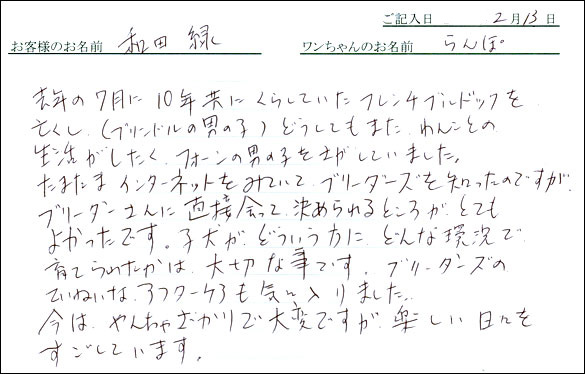 ご記入日 2月13日
お客様のお名前 和田 緑 ワンちゃんのお名前 らんぽ
去年の7月に10年共にくらしていたフレンチブルドックを
亡くし、(ブリンドルの男の子)どうしてもまた、わんことの
生活がしたく、フォーンの男の子をさがしていました。
たまたまインターネットをみていて、ブリーダーズを知ったのですが、
ブリーダーさんに直接会って、決められるところが、とても
よかったです。子犬が、どういう方に、どんな環況で
育てられたかは、大切な事です。ブリーダーズの
ていねいな、アフターケアも気に入りました。
今は、やんちゃざかりで大変ですが、楽しい日々を
すごしています。